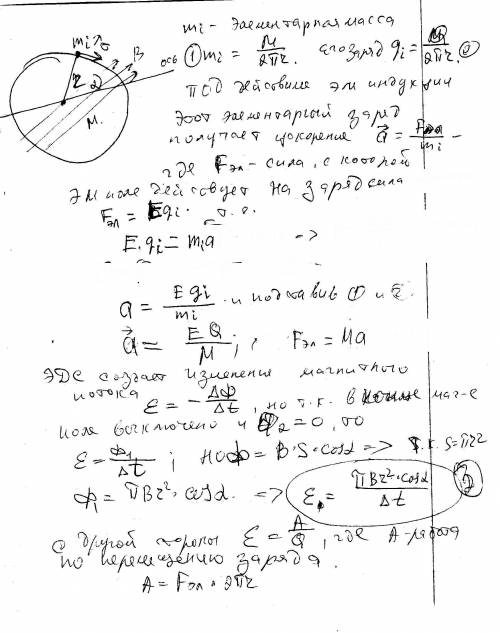 mi v B
ось
r α
M.
mi - элементарная масса
① mi = M/2πr. его заряд qi = Q/2πr. ②
под действием эм индукции
этот элементарный заряд
получает ускорение a = Fэл/mi -
где Fэл - сила, с которой
эм поле действует на заряд сила
Fэл = Eqi. т.е.
E·qi = mia =>
a = Eqi/mi и подставив ① и ②
a = EQ/M; Fэл = Ma
ЭДС создает изменение магнитного
потока ε = -ΔФ/Δt, но т.к. в конце маг-е
поле выключено и Ф2 = 0, то
ε = Ф1/Δt; но Ф = B·S·cosα => т.к. S=πr2
Ф1 = πBr2·cosα. => ε = πBr2·cosα/Δt ③
С другой стороны ε = A/Q, где A - работа
по перемещению заряда.
A = Fэл · 2πr